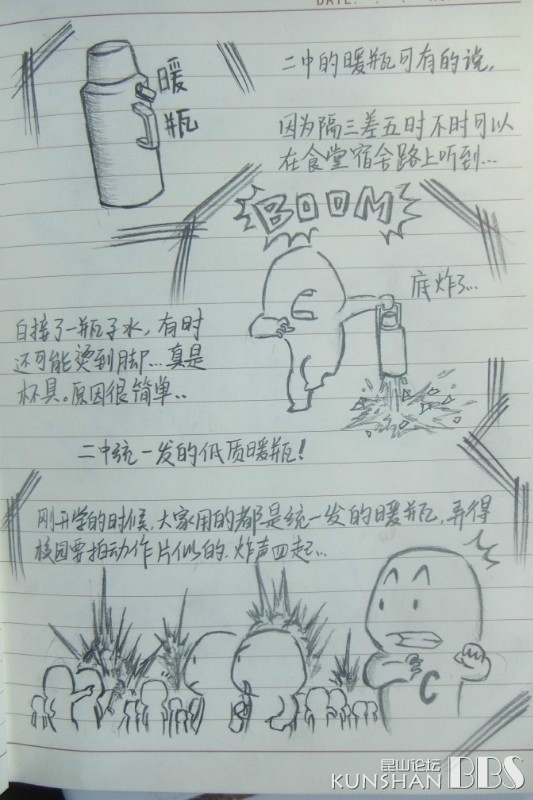 DATE:
暖
瓶
二中的暖瓶可有的说,
因为隔三差五时不时可以
在食堂宿舍路上听到...
BOOM
底炸了...
C
白接了一瓶子水,有时
还可能烫到脚...真是
杯具。原因很简单..
二中统一发的低质暖瓶!
刚开学的时候,大家用的都是统一发的暖瓶,弄得
校园要拍动作片似的.炸声四起...
C
昆山论坛
KUNSHAN BBS